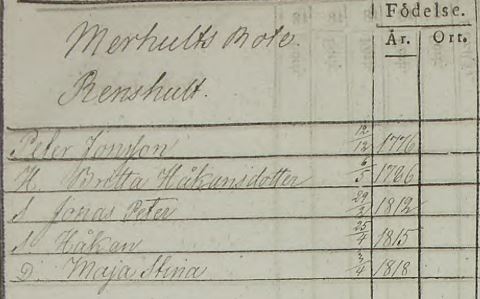 Födelse.
År. Ort.
Merhults Rote.
Renshult.
Peter Jonsson 12/12 1776
H. Britta Håkansdotter 6/5 1786
S Jonas Peter 29/3 1812
S Håkan 25/4 1815
D. Maja Stina 3/4 1818